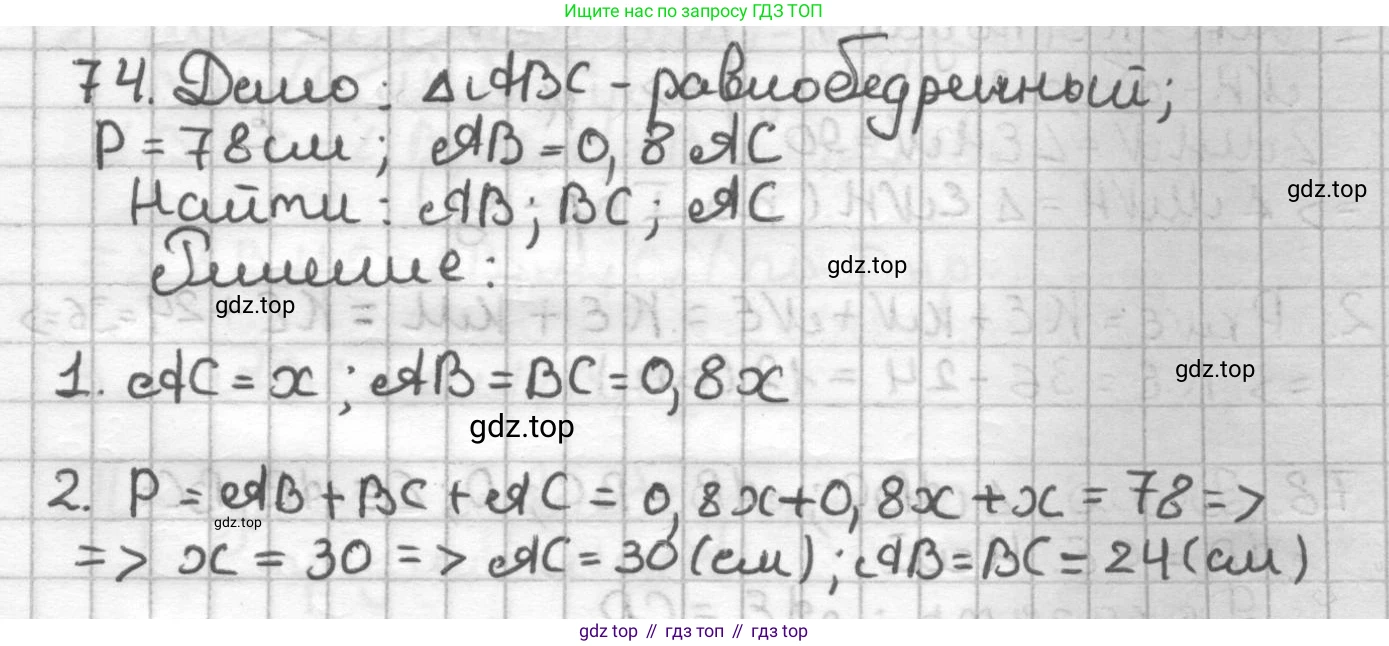 Ищите нас по запросу ГДЗ ТОП
74. Дано: △ABC - равнобедренный;
P = 78 см; AB = 0,8 AC
Найти: AB; BC; AC
gdz.top
Решение:
gdz.top
gdz.top
1. AC = x; AB = BC = 0,8x
gdz.top
gdz.top
2. P = AB + BC + AC = 0,8x + 0,8x + x = 78 =>
gdz.top
=> x = 30 => AC = 30 (см); AB = BC = 24 (см)
gdz top // гдз топ // gdz top